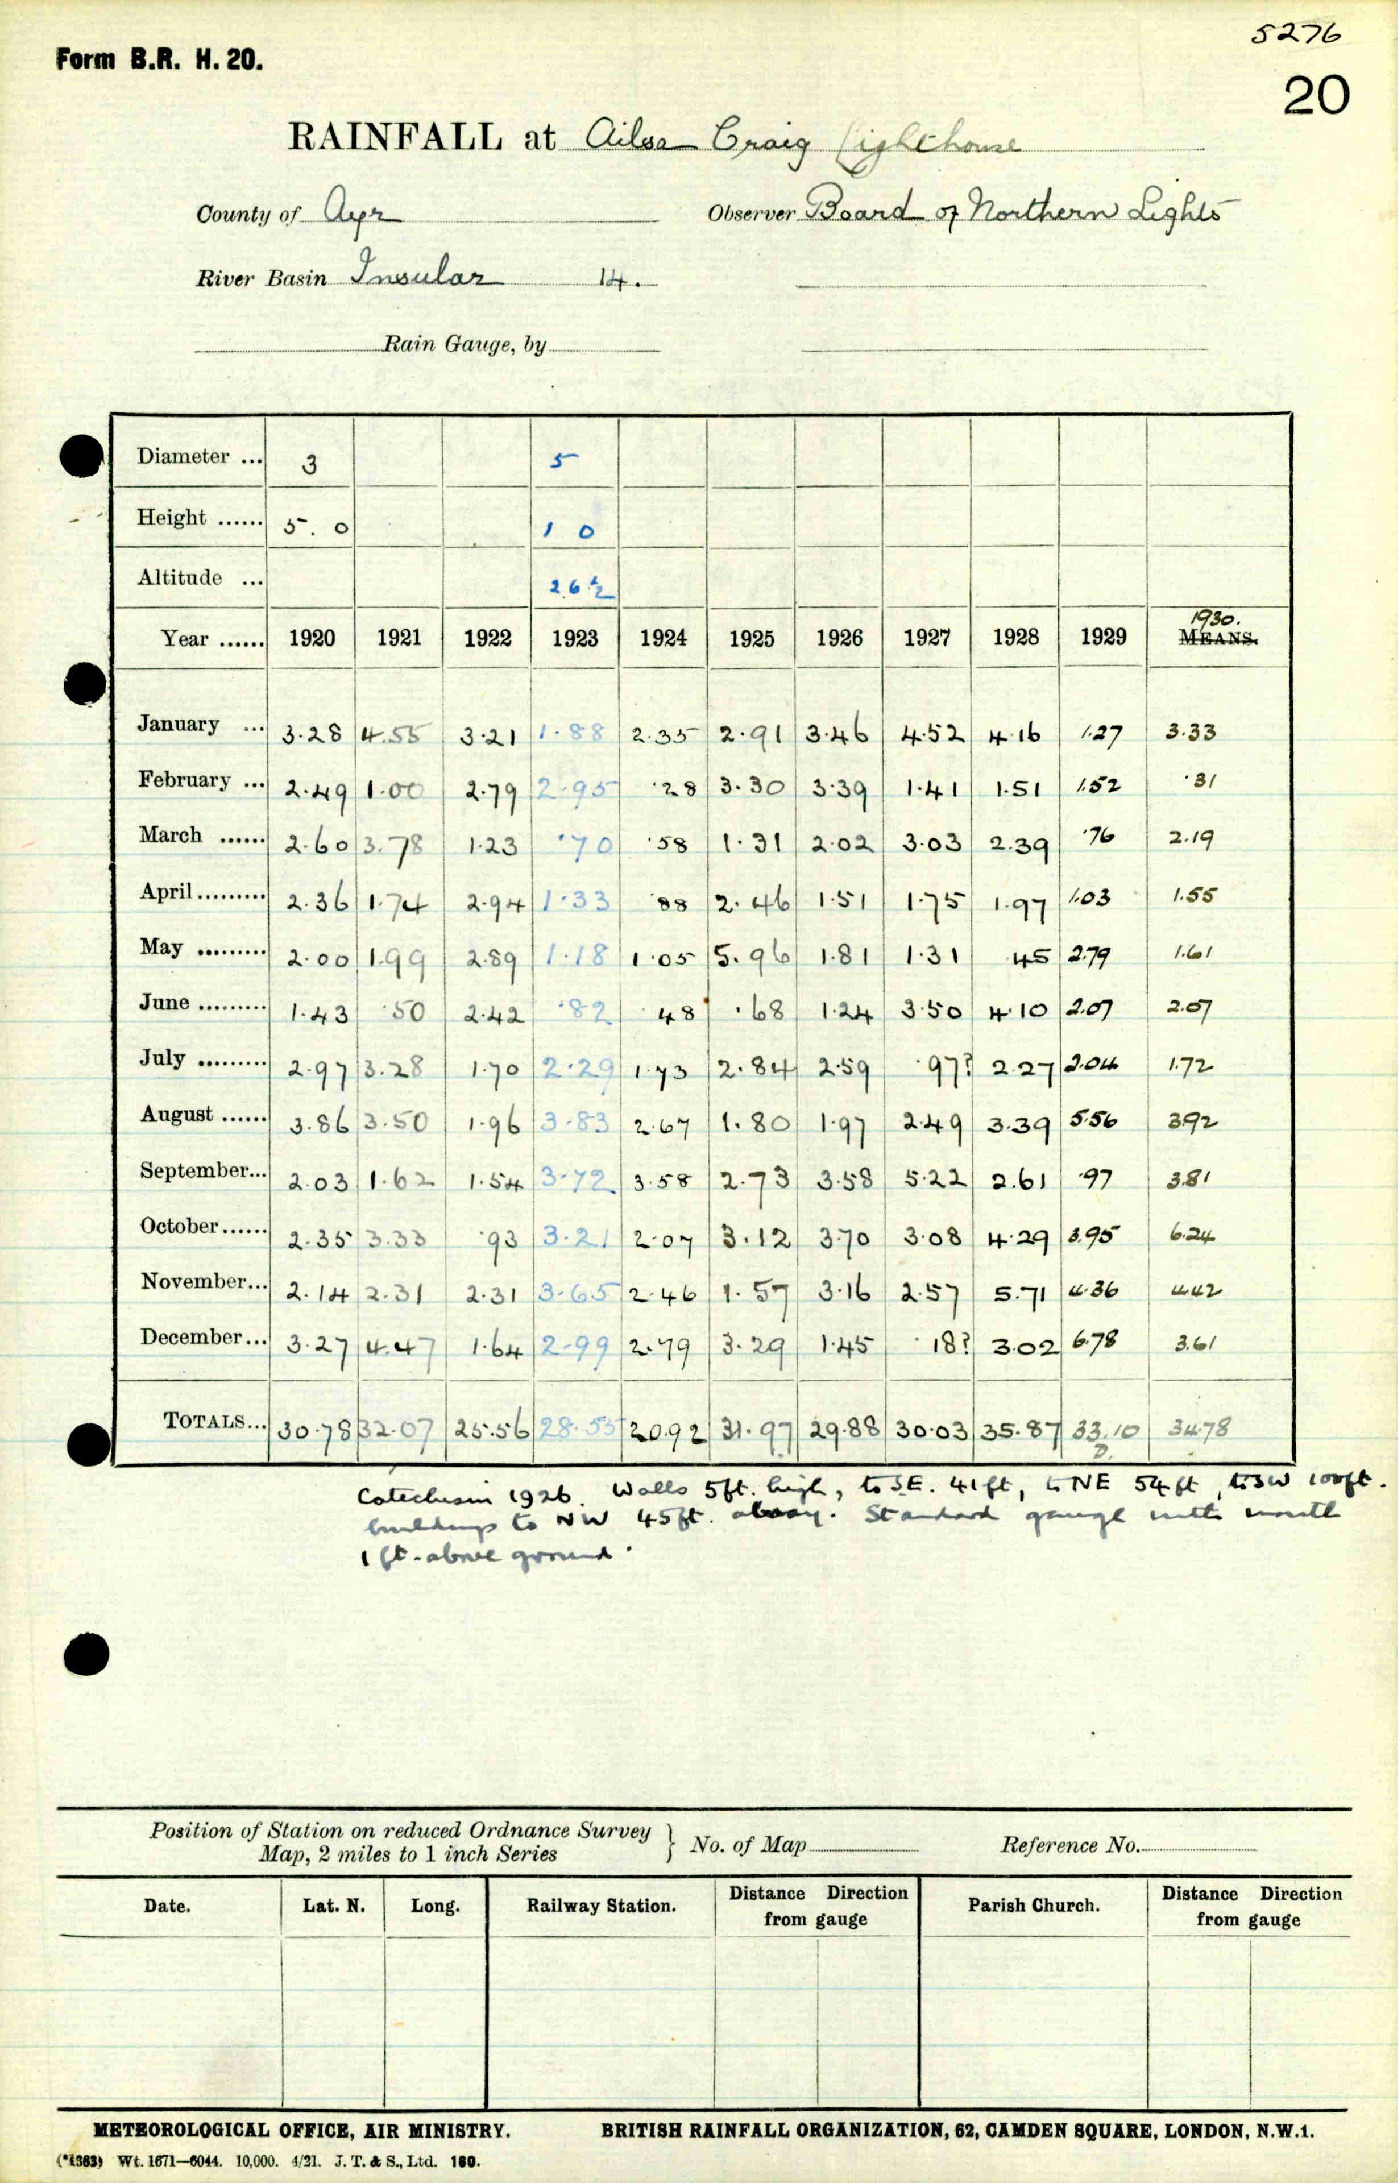 5276
Form B.R. H. 20.
20
RAINFALL at Ailsa Craig Lighthouse
County of Ayr Observer Board of Northern Lights
River Basin Insular 14.
Rain Gauge, by
Diameter ... 3 5
Height ...... 5. 0 1 0
Altitude ... 26½
1930.
Year ...... 1920 1921 1922 1923 1924 1925 1926 1927 1928 1929 MEANS.
January ... 3.28 4.55 3.21 1.88 2.35 2.91 3.46 4.52 4.16 1.27 3.33
February ... 2.49 1.00 2.79 2.95 .28 3.30 3.39 1.41 1.51 1.52 .31
March ...... 2.60 3.78 1.23 .70 .58 1.31 2.02 3.03 2.39 .76 2.19
April......... 2.36 1.74 2.94 1.33 .88 2.46 1.51 1.75 1.97 1.03 1.55
May ......... 2.00 1.99 2.89 1.18 1.05 5.96 1.81 1.31 .45 2.79 1.61
June ......... 1.43 .50 2.42 .82 .48 .68 1.24 3.50 4.10 2.07 2.07
July ......... 2.97 3.28 1.70 2.29 1.73 2.84 2.59 .97? 2.27 2.04 1.72
August ...... 3.86 3.50 1.96 3.83 2.67 1.80 1.97 2.49 3.39 5.56 3.92
September... 2.03 1.62 1.54 3.72 3.58 2.73 3.58 5.22 2.61 .97 3.81
October...... 2.35 3.33 .93 3.21 2.07 3.12 3.70 3.08 4.29 3.95 6.24
November... 2.14 2.31 2.31 3.65 2.46 1.57 3.16 2.57 5.71 4.36 4.42
December... 3.27 4.47 1.64 2.99 2.79 3.29 1.45 .18? 3.02 6.78 3.61
TOTALS... 30.78 32.07 25.56 28.55 20.92 31.97 29.88 30.03 35.87 33.10 34.78
D.
Catechism 1926. Walls 5ft. high, to SE. 41ft, to NE 54ft, to SW 100ft.
buildings to NW 45ft. away. Standard gauge with mouth
1 ft. above ground.
Position of Station on reduced Ordnance Survey
Map, 2 miles to 1 inch Series } No. of Map Reference No.
Date. Lat. N. Long. Railway Station. Distance Direction from gauge Parish Church. Distance Direction from gauge
METEOROLOGICAL OFFICE, AIR MINISTRY. BRITISH RAINFALL ORGANIZATION, 62, CAMDEN SQUARE, LONDON, N.W.1.
(*1383) Wt. 1671—6044. 10,000. 4/21. J. T. & S., Ltd. 160.